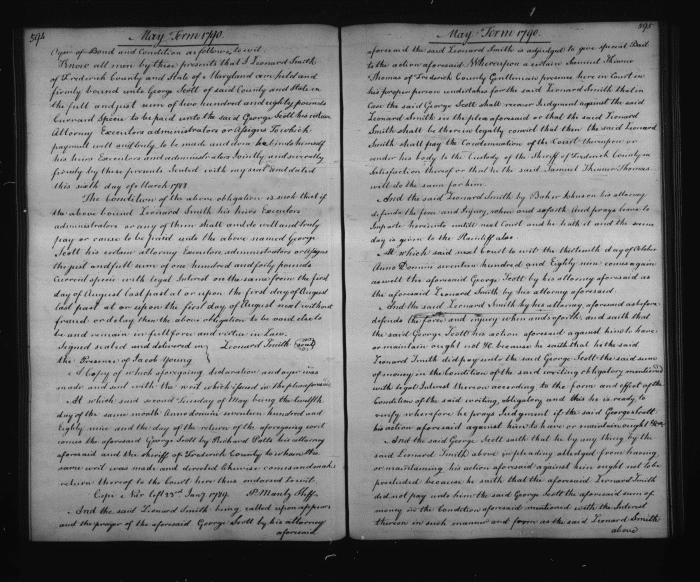 594
May Term 1790.
Oyer of Bond and Condition as follows, to wit.
Know all men by these presents that I Leonard Smith
of Frederick County and State of Maryland am held and
firmly bound unto George Scott of said County and State in
the full and just sum of two hundred and eighty pounds
Current Specie to be paid unto the said George Scott his certain
Attorney Executors administrators or Assigns To which
payment well and truly to be made and done bind myself
his heirs Executors and administrators Jointly and severally
firmly by these presents Sealed with my seal and dated
this sixth day of March 1788
The Condition of the above obligation is such that if
the above bound Leonard Smith his heirs Executors
administrators or any of them shall and do well and truly
pay or cause to be paid unto the above named George
Scott his certain attorney Executors administrators or Assigns
the just and full sum of one hundred and forty pounds
Current specie with legal Interest on the same from the first
day of August last past at or upon the first day of August
last past at or upon the first day of August next without
fraud or delay then the above obligation to be void else to
be and remain in full force and virtue in Law.
Signed sealed and delivered in Leonard Smith (seal)
the Presence of Jacob Young
A Copy of which aforegoing declaration and oyer was
made and sent with the writ which issued in the plea aforesaid
At which said second Tuesday of May being the twelfth
day of the same month Anno domini seventeen hundred and
Eighty nine and the day of the return of the aforegoing writ
comes the aforesaid George Scott by Richard Potts his attorney
aforesaid and the sheriff of Frederick County to whom the
same writ was made and directed likewise comes and makes
return thereof to the Court here thus endorsed to wit.
Copie Nar left 23rd Jany 1789. P. Mantz Shff.
And the said Leonard Smith being called upon appears
and the prayer of the aforesaid George Scott by his attorney
aforesaid
595
May Term 1790.
aforesaid the said Leonard Smith is adjudged to give special Bail
to the action aforesaid Whereupon a certain Samuel Skinner
Thomas of Frederick County Gentleman present here in Court in
his proper person undertakes for the said Leonard Smith that in
Case the said George Scott shall recover Judgment against the said
Leonard Smith in the plea aforesaid or that the said Leonard
Smith shall be therein legally convict that then the said Leonard
Smith shall pay the Condemnation of the Court thereupon or
render his body to the Custody of the Sheriff of Frederick County in
Satisfaction thereof or that he the said Samuel Skinner Thomas
will do the same for him.
And the said Leonard Smith by Baker Johnson his attorney
defends the force and Injury, when and so forth and prays leave to
Imparle hereunto until next Court and he hath it and the same
day is given to the Plaintiff also
At which said next Court to wit the thirteenth day of October
Anno Domini seventeen hundred and Eighty nine comes again
as well the aforesaid George Scott by his attorney aforesaid as
the aforesaid Leonard Smith by his attorney aforesaid
And the said Leonard Smith by his attorney aforesaid as before
defends the force and injury when and so forth and saith that
the said George Scott his action aforesaid against him to have
or maintain ought not &c because he saith that he the said
Leonard Smith did pay unto the said George Scott the said sum
of money in the Condition of the said writing obligatory mentioned
with legal Interest thereon according to the form and effect of the
Condition of the said writing obligatory and this he is ready to
verify wherefore he prays Judgment if the said George Scott
his action aforesaid against him to have or maintain ought &c
And the said George Scott saith that he by any thing by the
said Leonard Smith above in pleading alledged from having
or maintaining his action aforesaid against him ought not to be
precluded because he saith that the aforesaid Leonard Smith
did not pay unto him the said George Scott the aforesaid sum of
money in the Condition aforesaid mentioned with the Interest
thereon in such manner and form as the said Leonard Smith
above